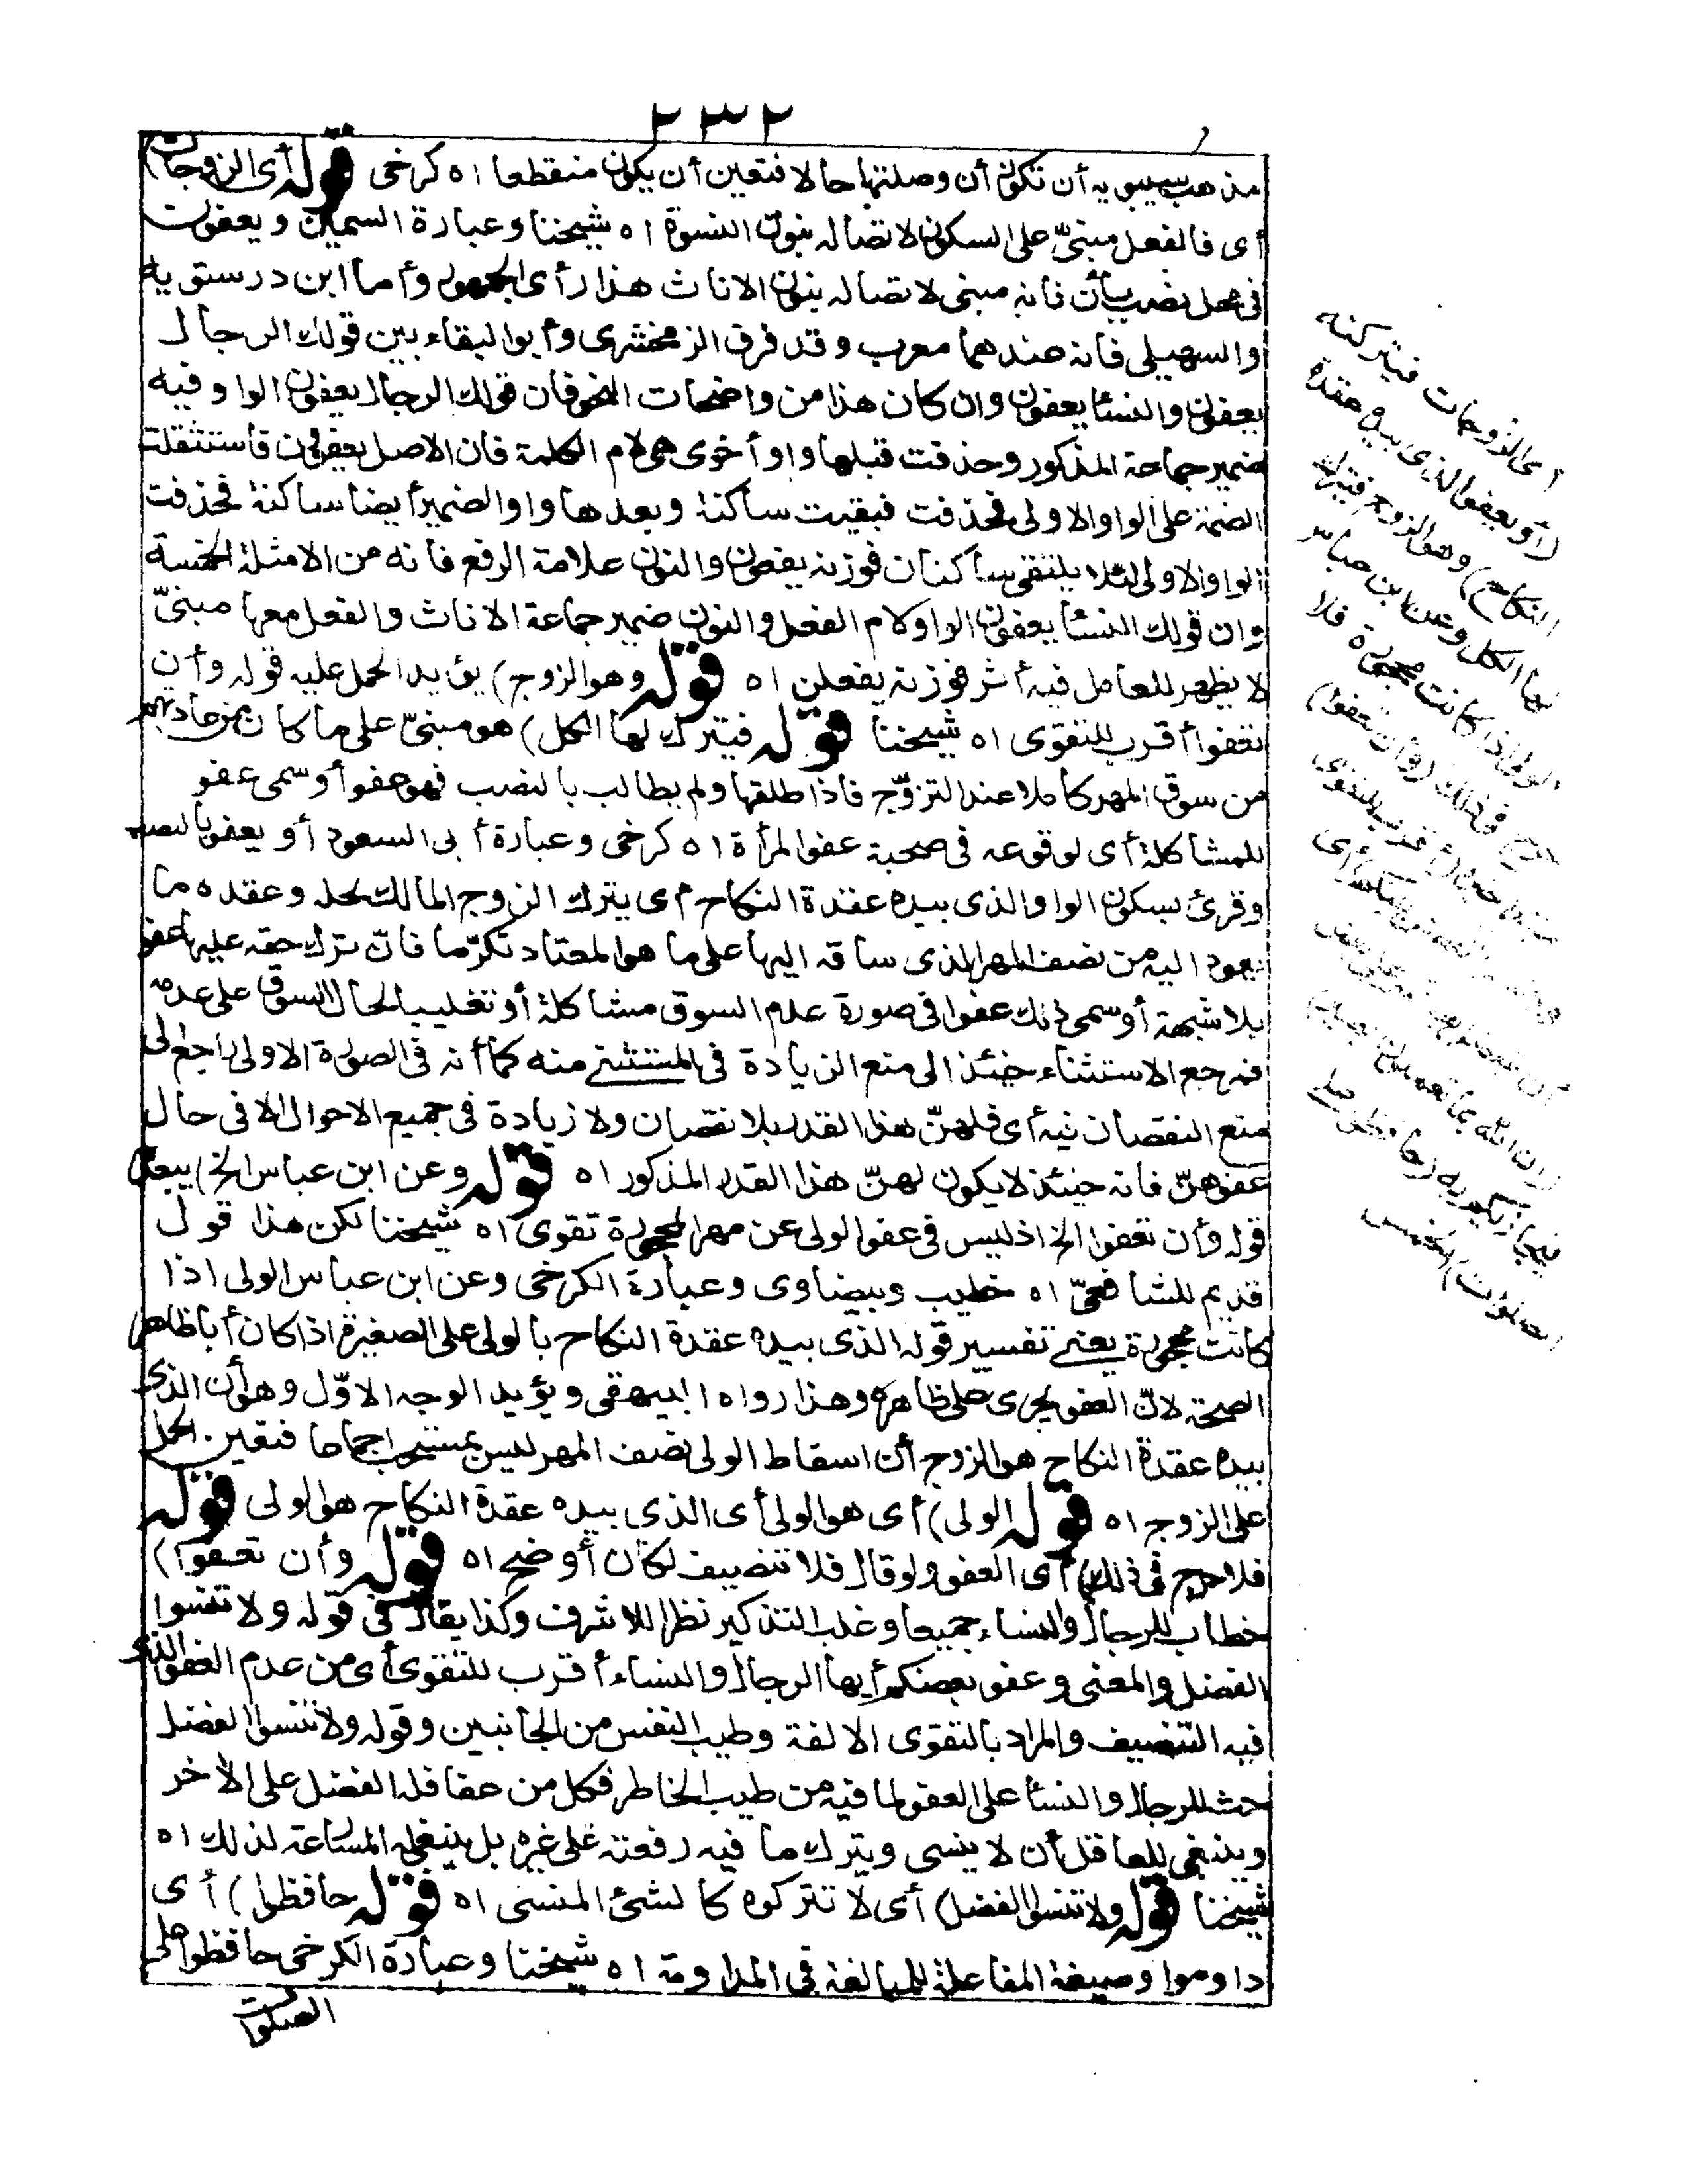 ٢٣٢
مذهب سيبويه أن تكون أن وصلتها حالا فتعين أن يكون منقطعا اه كرخى قوله أى الزوجات)
أى فالفعل مبنىّ على السكون لاتصاله بنون النسوة اه شيخنا وعبارة السمين ويعفون
فى محل نصب بأن فانه مبنى لاتصاله بنون الاناث هذا رأى الجمهور وأما ابن درستويه
والسهيلى فانه عندهما معرب وقد فرق الزمخشرى وأبو البقاء بين قولك الرجال
يعفون والنسأ يعفون وان كان هذا من واضحات النحو فان قولك الرجال يعفون الواو فيه
ضمير جماعة المذكور وحذفت قبلها واو أخرى هى لام الكلمة فان الاصل يعفوون فأستثقلت
الضمة على الواو الاولى فحذفت فبقيت ساكنة وبعدها واو الضمير أيضا ساكنة فحذفت
الواو الاولى لئلا يلتقى ساكنان فوزنه يفعون والنون علامة الرفع فانه من الامثلة الخمسة
وان قولك النسأ يعفون الواو لام الفعل والنون ضمير جماعة الاناث والفعل معها مبنىّ
لا يظهر للعامل فيه أثر فوزنه يفعلن اه قوله وهو الزوج) يؤيد الحمل عليه قوله وأن
تعفوا أقرب للتقوى اه شيخنا قوله فيترك لها الكل) هو مبنىّ على ما كان من عادتهم
من سوق المهر كاملا عند التزوّج فاذا طلقها ولم يطالب بالنصب فهو عفو أو سمى عفو
للمشاكلة أى لوقوعه فى صحبة عفو المرأة اه كرخى وعبارة أبى السعود أو يعفو بالنصب
وقرئ بسكون الواو الذى بيده عقدة النكاح أى يترك الزوج المالك لحله وعقده ما
يعود اليه من نصف المهر الذى ساقه اليها على ما هو المعتاد تكرّما فانّ ترك حقه عليها عفو
بلا شبهة أو سمى ذلك عفوا فى صورة عدم السوق مشاكلة أو تغليبا لحال السوق على عدمه
فمرجع الاستثناء حينئذ الى منع الزيادة فى المستثنى منه كما أنه فى الصورة الاولى راجع الى
منع النقصان فيه أى فلهنّ هذا القدر بلا نقصان ولا زيادة فى جميع الاحوال الا فى حال
عفوهنّ فانه حينئذ لا يكون لهنّ هذا القدر المذكور اه قوله وعن ابن عباس الخ) يبعد
قوله وأن تعفوا الخ اذ ليس فى عفو الولى عن مهر المحجورة تقوى اه شيخنا لكن هذا قول
قديم للشافعىّ اه خطيب وبيضاوى وعبارة الكرخى وعن ابن عباس الولى اذا
كانت محجورة يعنى تفسير قوله الذى بيده عقدة النكاح بالولى على الصغيرة اذا كان أبا ظاهر
الصحة لانّ العفو يجرى على ظاهره وهذا رواه البيهقى ويؤيد الوجه الاوّل وهو أن الذى
بيده عقدة النكاح هو الزوج أن اسقاط الولى نصف المهر ليس بمستحب اجماعا فتعين الحمل
على الزوج اه قوله الولى) أى هو الولى أى الذى بيده عقدة النكاح هو الولى قوله
فلا حرج فى ذلك) أى العفو ولو قال فلا تنصيف لكان أوضح اه قوله وأن تعفوا)
خطاب للرجال والنساء جميعا وغلب التذكير نظرا للاشرف وكذا يقال فى قوله ولا تنسوا
الفضل والمعنى وعفو بعضكم أيها الرجال والنساء أقرب للتقوى أى من عدم العفو الذى
فيه التنصيف والمراد بالتقوى الالفة وطيب النفس من الجانبين وقوله ولا تنسوا الفضل
حث للرجال والنسأ على العفو لما فيه من طيب الخاطر فكل من عفا فله الفضل على الاخر
وينبغى للعاقل أن لا ينسى ويترك ما فيه رفعته على غيره بل ينبغى له المسارعة لذلك اه
شيخنا قوله ولا تنسوا الفضل) أى لا تتركوه كالشئ المنسى اه قوله حافظوا) أى
داوموا وصيغة المفاعلة للمبالغة فى المداومة اه شيخنا وعبارة الكرخى حافظوا على
الصلوات
أى الزوجات فيتركنه
(أو يعفو الذى بيده عقدة
النكاح) وهو الزوج فيترك
لها الكل وعن ابن عباس
الولى اذا كانت محجورة فلا
حرج فى ذلك (وأن تعفوا)
أقرب للتقوى
ان الله بما تعملون بصير)
فيجازيكم به (حافظوا على
الصلوات) الخمس